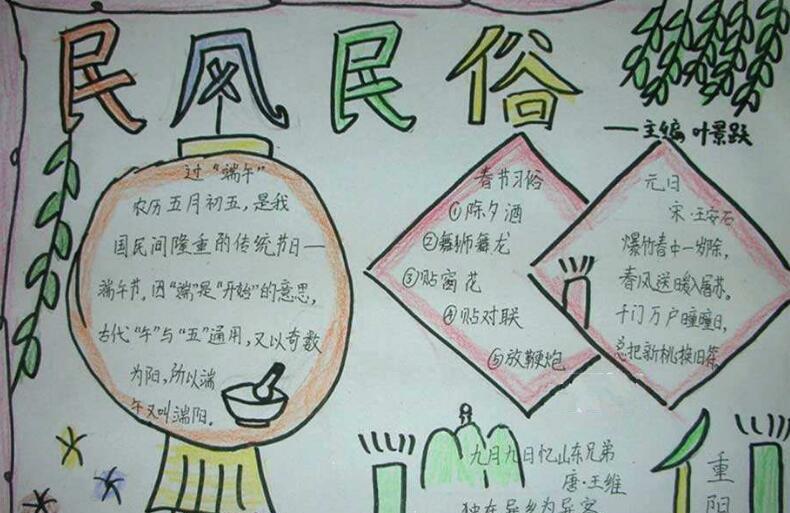 民风民俗
——主编 叶景跃
过“端午”
农历五月初五，是我
国民间隆重的传统节日—
端午节。因“端”是“开始”的意思，
古代“午”与“五”通用，又以奇数
为阳，所以端
午又叫端阳。
春节习俗
①除夕酒
②舞狮舞龙
③贴窗花
④贴对联
⑤放鞭炮
元日
宋·王安石
爆竹春中一岁除，
春风送暖入屠苏。
千门万户曈曈日，
总把新桃换旧符。
九月九日忆山东兄弟
唐·王维
独在异乡为异客
重
阳